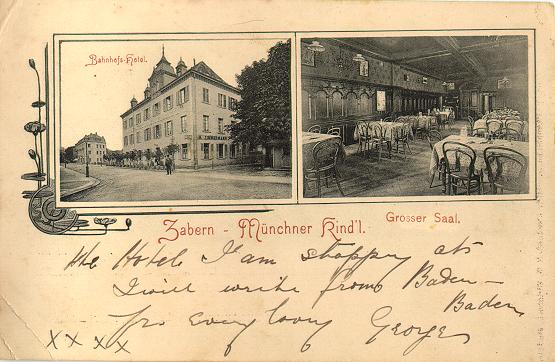 Bahnhofs-Hotel.
Zabern - Münchner Kind'l.
Grosser Saal.
the Hotel I am stopping at
I will write from Baden-
Baden
Yrs Every loving George
x x x x